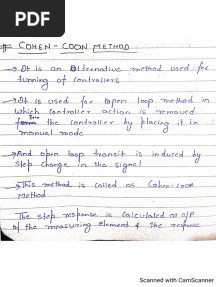 PDF
# COHEN-COON METHOD
→ It is an alternative method used for
tunning of controllers
→ It is used for open loop method in
which controller action is removed
from the controller by placing it in
manual mode
→ And open loop transit is induced by
step change in the signal
→ This method is called as Cohen-coon
Method
The step response is calculated at o/p
of the measuring element & the response
Scanned with CamScanner